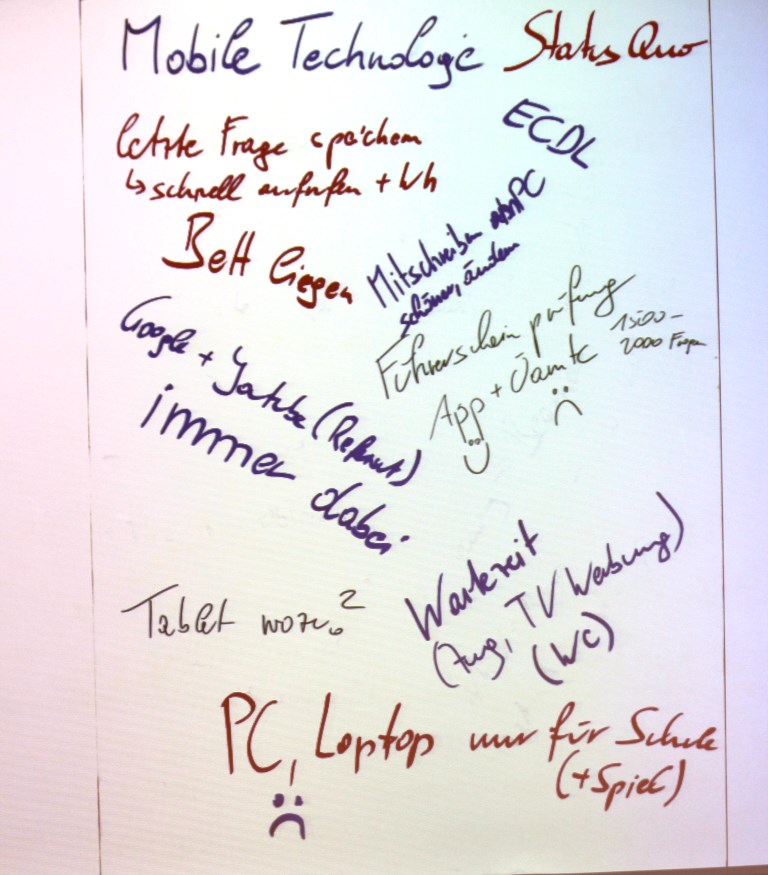 Mobile Technologie Status Quo
ECDL
letzte Frage speichern
↳ schnell aufrufen + Wh
Bett liegen
Mitschreiben PC
schöner, ändern
Führerscheinprüfung
App + Öamtc 1500-
2000 Fragen
Google + Youtube (Referat)
immer dabei
Wartezeit
(Zug, TV Werbung)
(WC)
Tablet wozu?
PC, Laptop nur für Schule
(+Spiel)